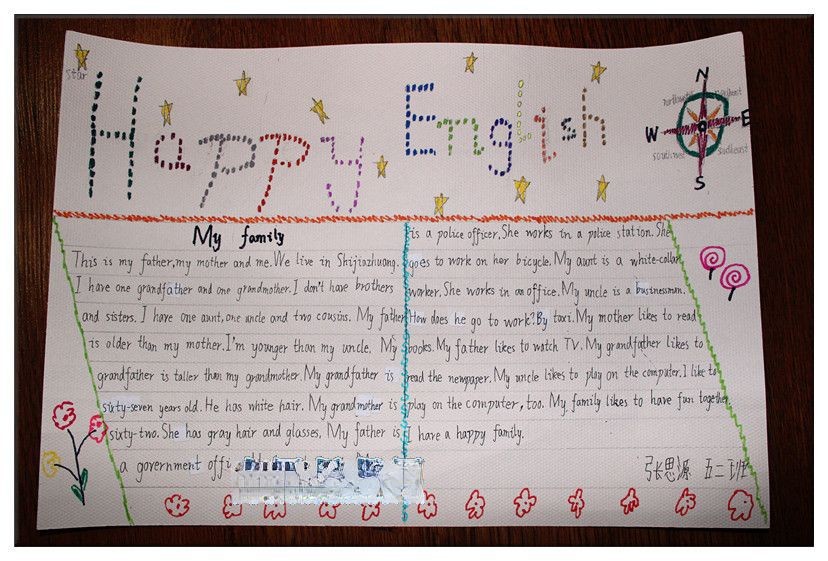 Happy English
star
N
northwest
northeast
W
E
southwest
S
My family
This is my father, my mother and me. We live in Shijiazhuang.
I have one grandfather and one grandmother. I don't have brothers
and sisters. I have one aunt, one uncle and two cousins. My father
is older than my mother. I'm younger than my uncle. My
grandfather is taller than my grandmother. My grandfather is
sixty-seven years old. He has white hair. My grandmother is
sixty-two. She has gray hair and glasses. My father is
a government offi
is a police officer. She works in a police station. She
goes to work on her bicycle. My aunt is a white-collar
worker. She works in an office. My uncle is a businessman.
How does he go to work? By taxi. My mother likes to read
books. My father likes to watch TV. My grandfather likes to
read the newpaper. My uncle likes to play on the computer. I like to
play on the computer, too. My family likes to have fun together.
I have a happy family.
张思源 五二班